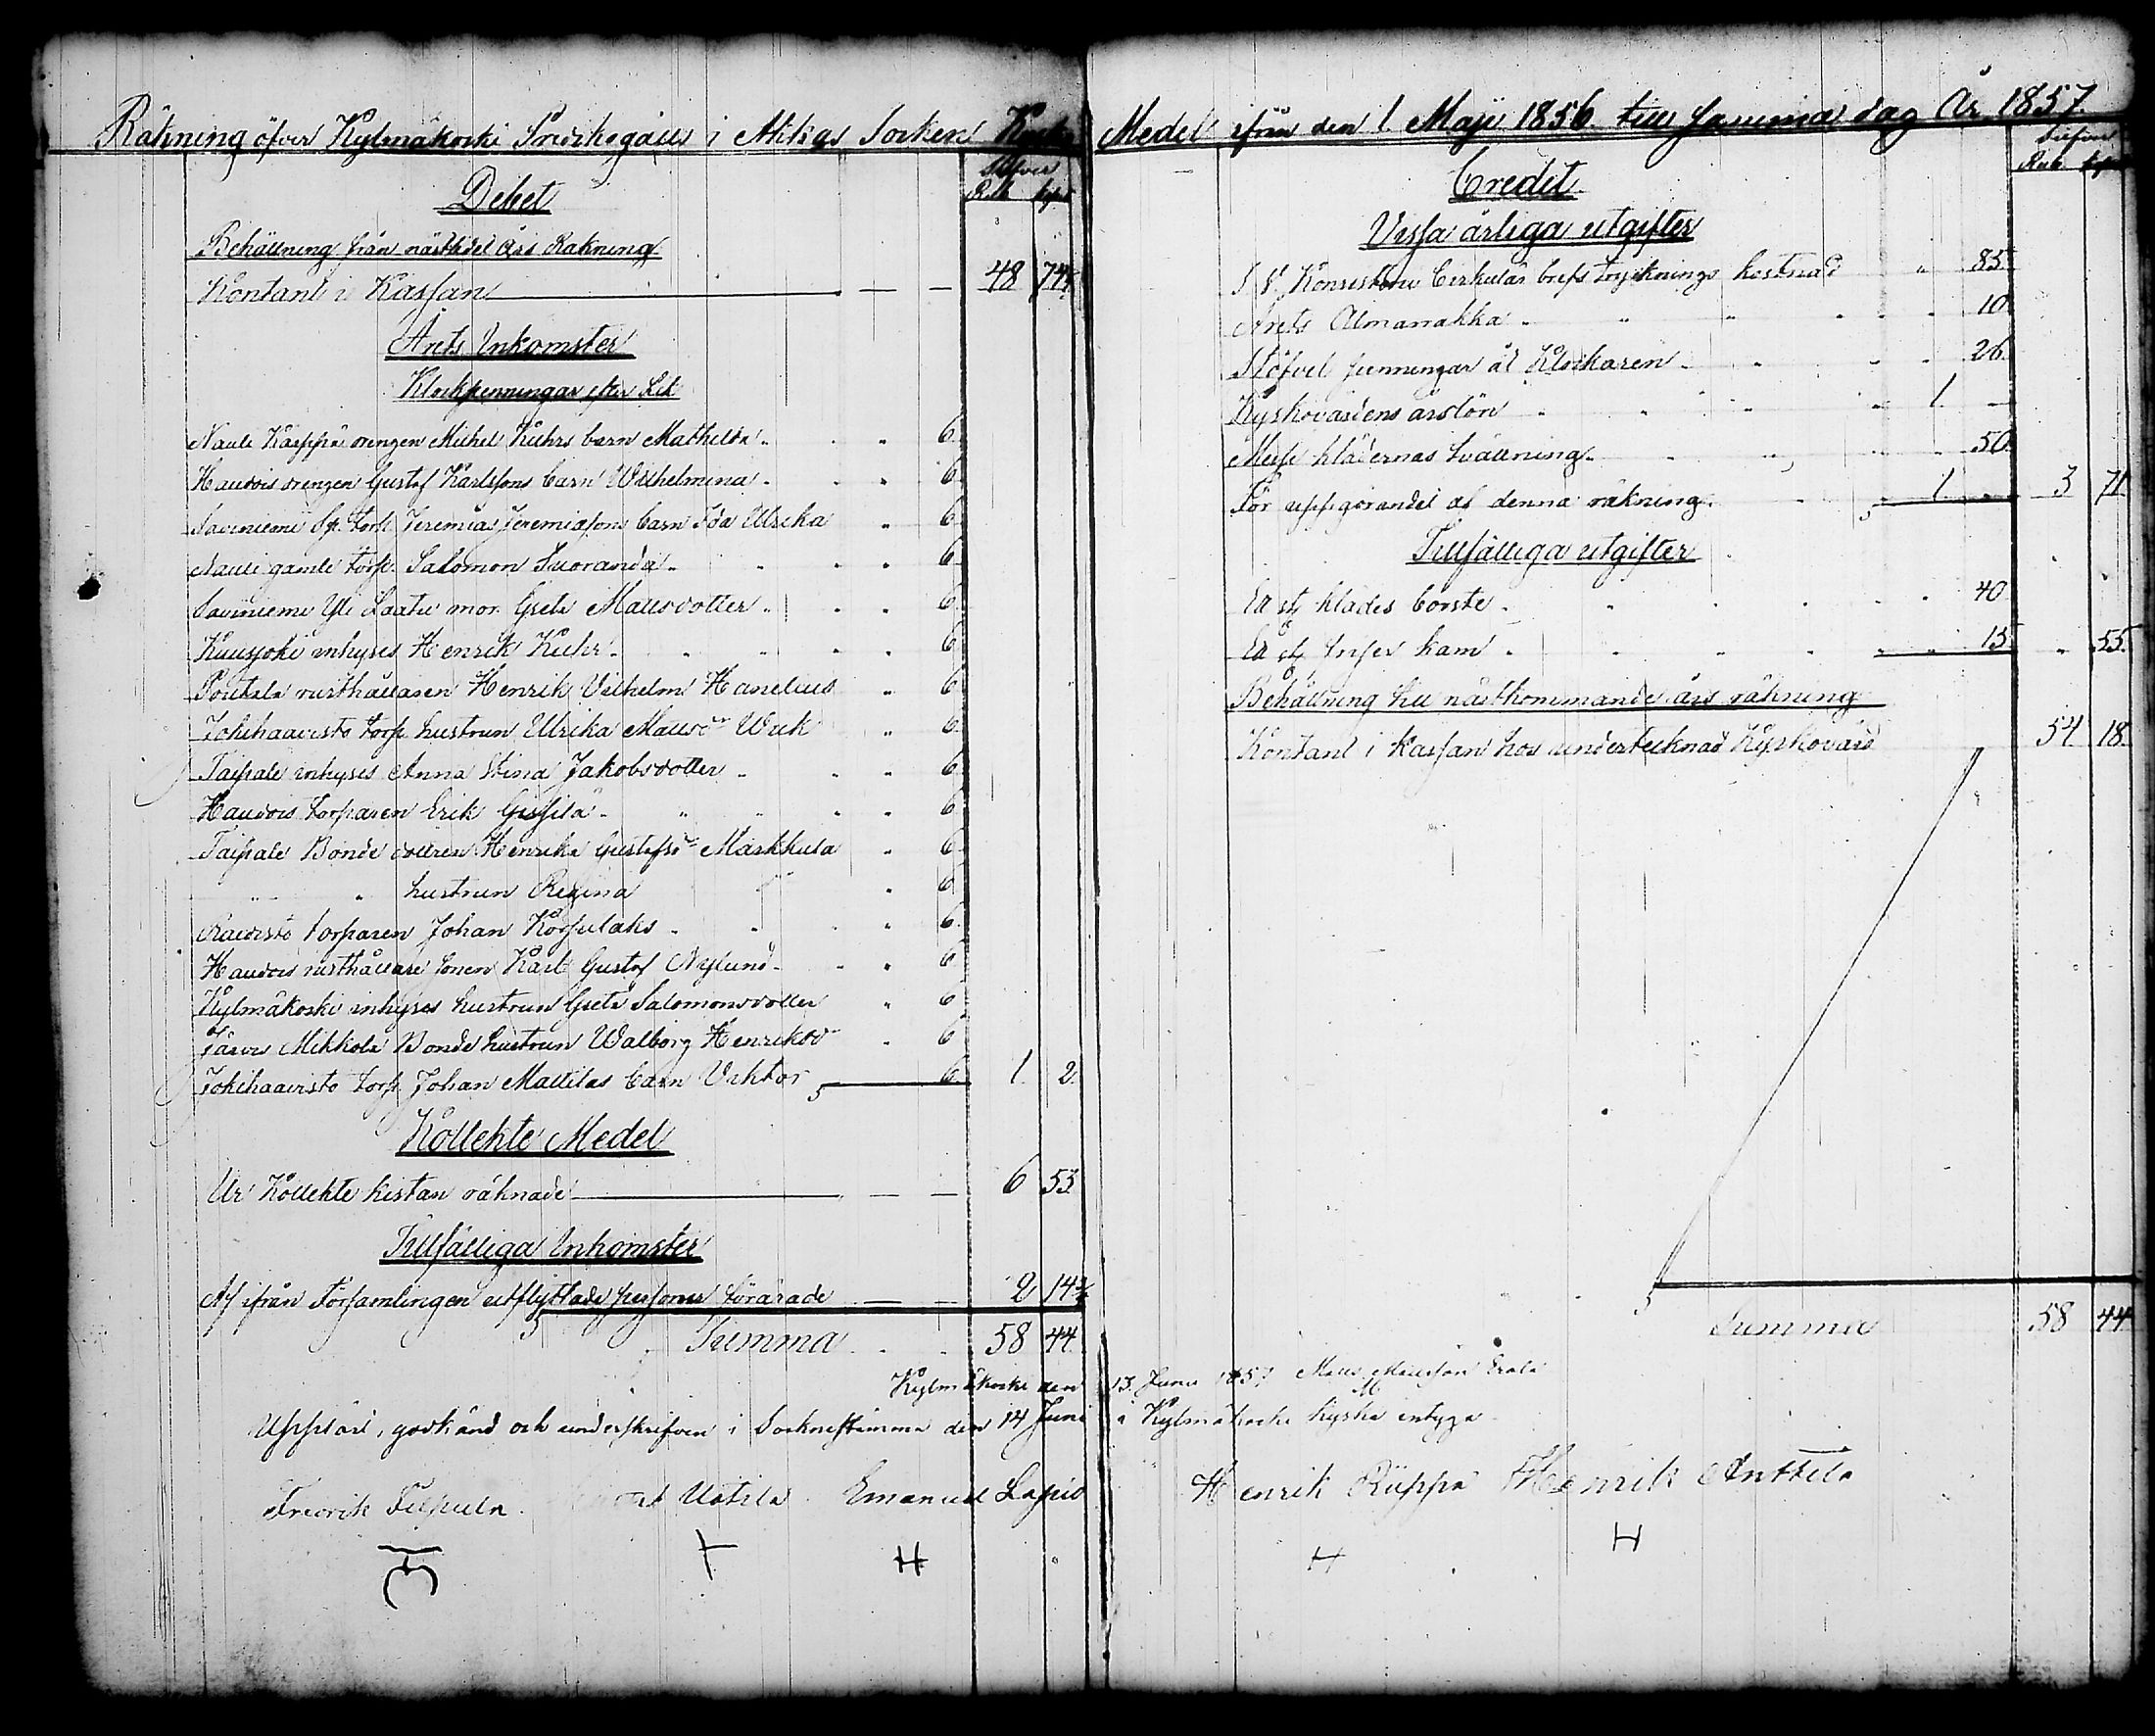 Räkning öfver Kylmäkoski Predikogälls i Akkas Socken Kyrko Medel ifrån den 1. Maji 1856 till samma dag År 1857.
Debet
Silfver
Rub. kop.
Behållning från nästledet års Räkning
Kontant i Kassan — — 48 74½
Årets Inkomster
Klockpenningar efter Lik
Nauli Kaeppä drengen Michel Kuhrs barn Mathilda „ 6.
Haudois drengen Gustaf Karlssons barn Wilhelmina „ 6.
Saviniemi Sp. torp. Jeremias Jeremiassons barn Ida Ulrika „ 6.
Nauli gamle torp. Salomon Suoranda „ 6.
Saviniemi Yli Laatu mor. Greta Matsdotter „ 6.
Kuusjoki inhyses Henrik Kuhr „ 6.
Pontela rusthållaren Henrik Vilhelm Hanelius „ 6.
Jokihaavisto torp. hustrun Ulrika Matsdr Wiik „ 6.
Taipale inhyses Anna Stina Jakobsdotter „ 6.
Haudois torparen Erik Gissilä „ 6.
Taipale Bonde dottren Henrika Gustafsdr Markkula „ 6.
„ „ hustrun Regina „ 6.
Raivisto torparen Johan Korpulaks „ 6.
Haudois rusthållare sonen Karl Gustaf Nylund „ 6.
Kylmäkoski inhyses hustrun Greta Salomonsdotter „ 6.
Järvis Mikkola Bonde hustrun Walborg Henriksdr „ 6.
Jokihaavisto torp. Johan Mattilas barn Viktor 6. 1. 2.
Kollekte Medel
Ur Kollekte kistan räknade — — 6 53
Tillfälliga Inkomster
Af ifrån Församlingen utflyttade personer förärade — — 2 14½
Summa 58 44
Credit
Silfver
Rub. kop.
Vissa årliga utgifter
Konsistorii Cirkulär brefs tryknings kostnad „ 85.
Årets Almanakka „ 10.
Stöfvel penningar åt Klockaren „ 26.
Kyrkovärdens årslön 1. —
Mess klädernas tvättning „ 50.
För uppgörandet af denna räkning 1. „ 3 71
Tillfälliga utgifter
En st. klädes borste „ 40
En st. kam „ 15. „ 55.
Behållning till nästkommande års räkning
Kontant i Kassan hos undertecknad Kyrkovärd 54 18.
Summa 58 44
Kylmäkoski den 13. Junii 1857 Mats Matsson Erola
Uppläst, godkänd och underskrifven i Socknestämma den 14 Juni i Kylmäkoski kyrka intyga
Fredrik Filpula. Uotila Emanuel Lapio Henrik Rüppä Henrik Anttila